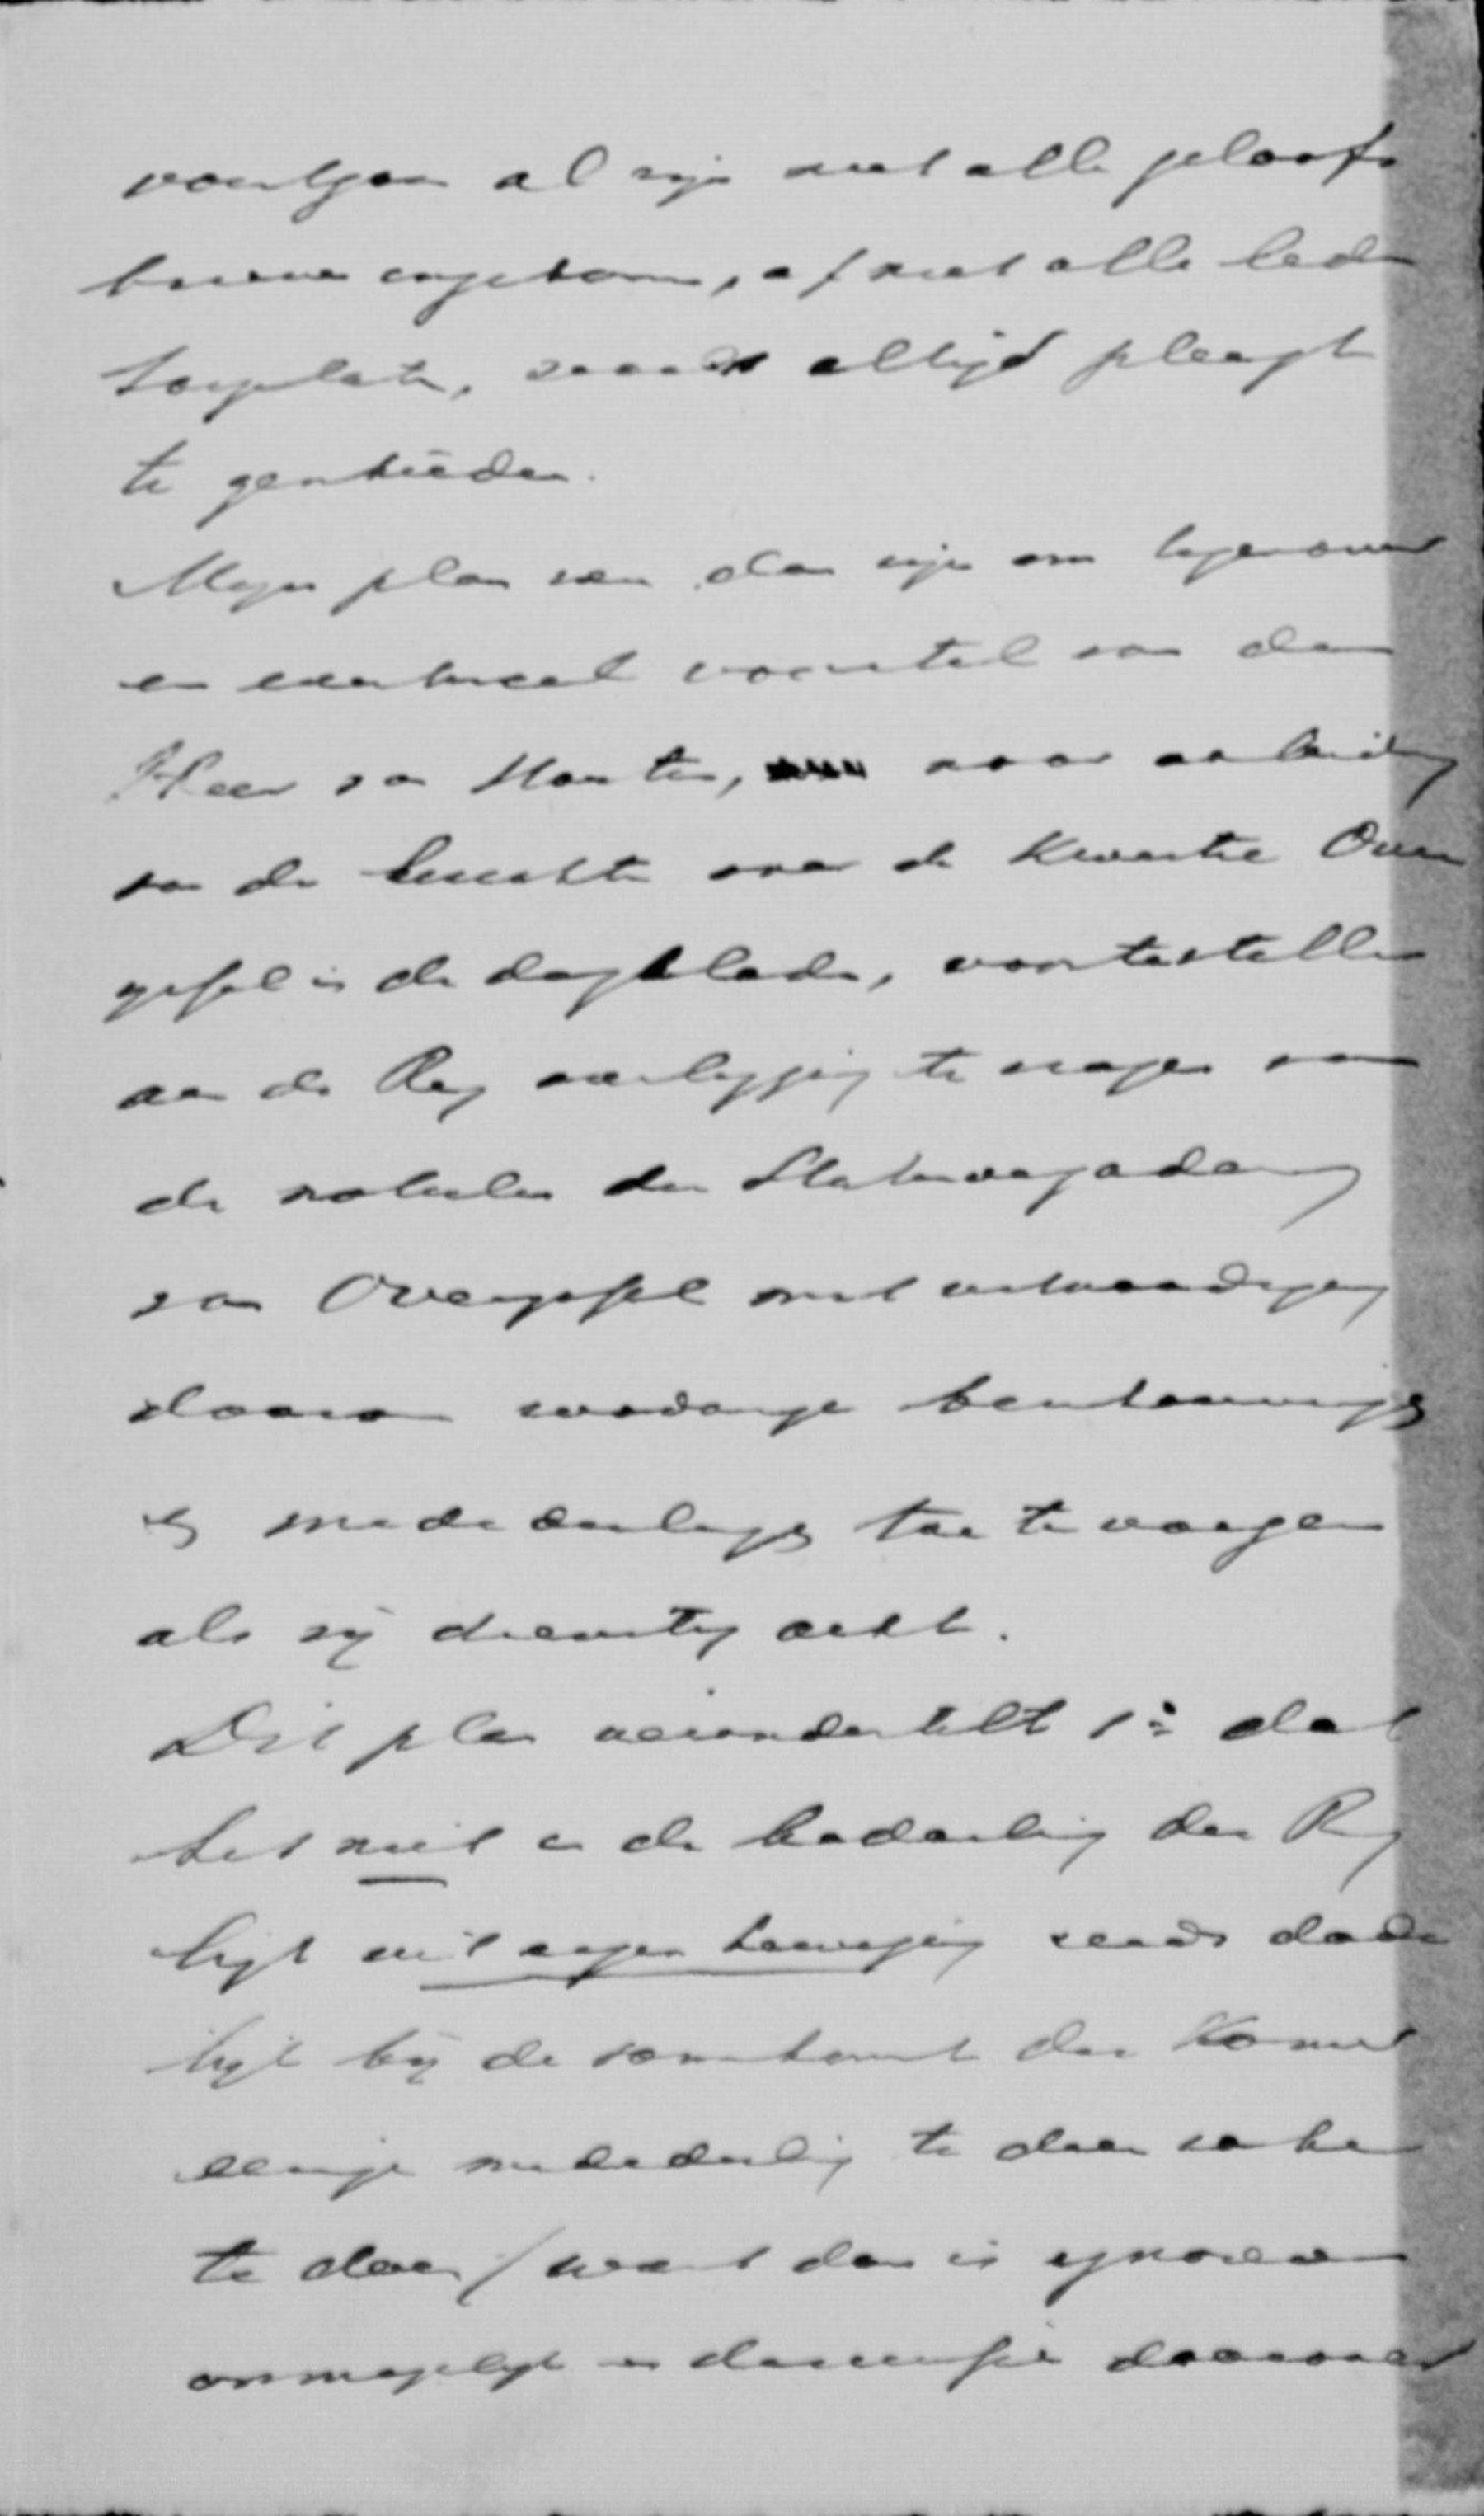 voortgaan al zijn niet alle geloofs
brieven ingekomen, of niet alle leden
toegelaten, zooals altijd pleegt
te geschieden.
Mijn plan zou dan zijn om tegenover
een eventueel voorstel van den
Heer van Houten, naar aanleiding
van de berichten over de kwestie Over
ijssel in de dagbladen, voor te stellen
aan de Reg overlegging te vragen van
de notulen der Statenvergadering
van Overijssel met uitnoodiging
daaraan zoodanige beschouwingen
en mededeelingen toe te voegen
als zij dienstig acht.
Dit plan veronderstelt 1o dat
het niet in de bedoeling der Reg
ligt uit eigen beweging reeds dade
lijk bij de samenkomst der Kamer
eenige mededeeling te dezer zake
te doen / want dan is ignoreeren
onmogelijk en discussie daarover